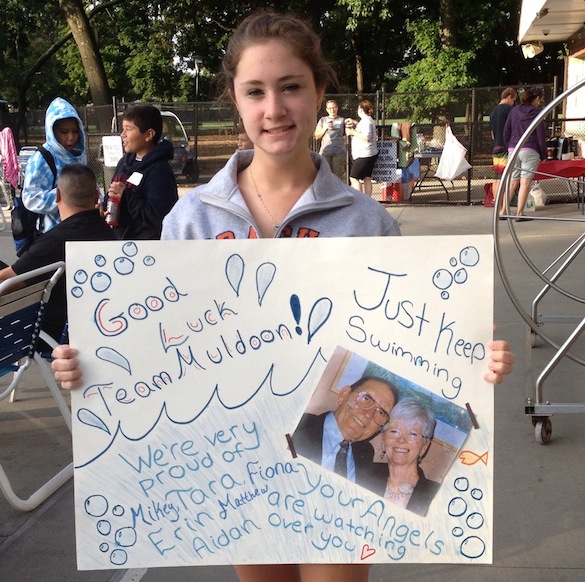 Good
Luck
Team Muldoon!
Just Keep
Swimming
We're very
proud of
Mikey, Tara, Fiona
Erin Matthew
Aidan
Your Angels
are watching
over you